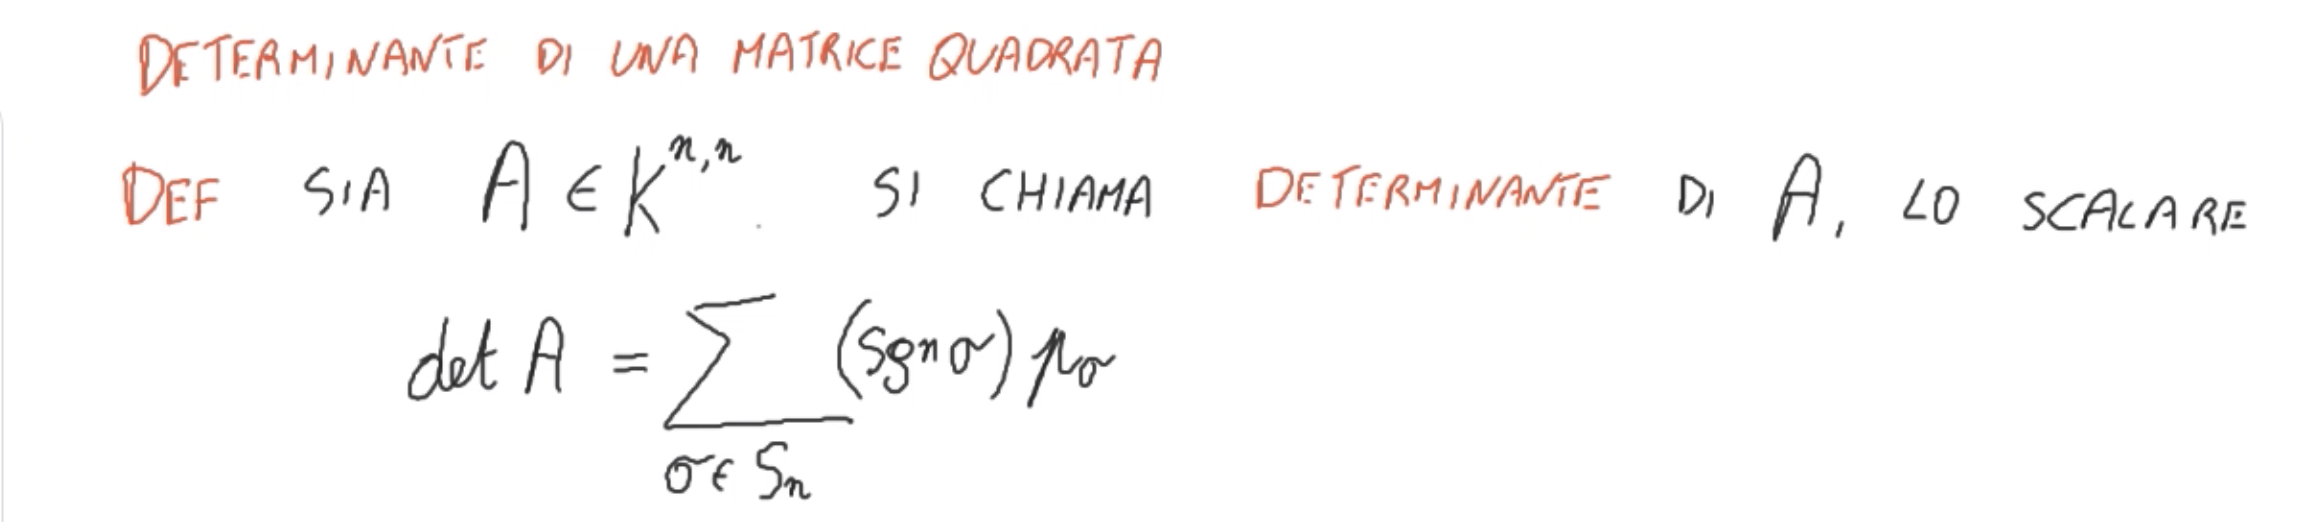 DETERMINANTE DI UNA MATRICE QUADRATA
DEF SIA A ∈ K^{n,n}. SI CHIAMA DETERMINANTE DI A, LO SCALARE
det A = ∑_{σ ∈ S_n} (sgn σ) p_σ